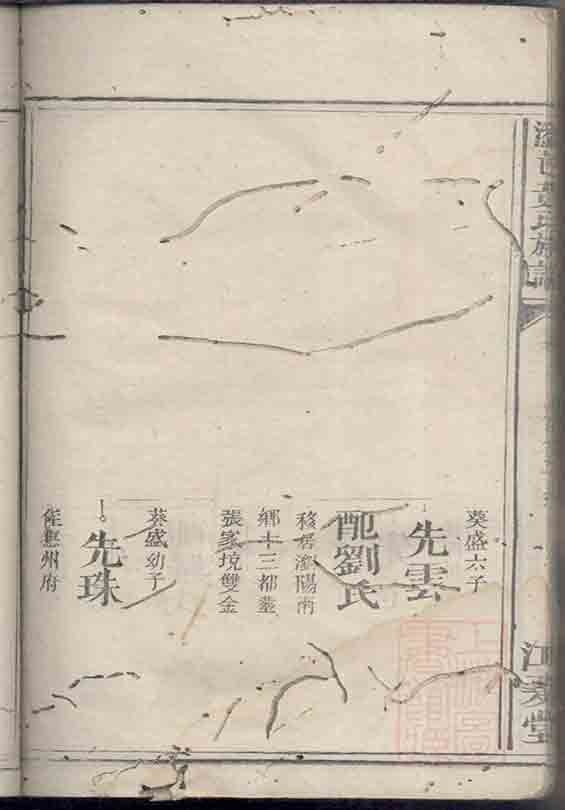 氏族譜
江夏堂
葵盛六子
先雲
配劉氏
移居瀏陽南
鄉十三都蓋
張家境雙金
葵盛幼子
先珠
住惠州府